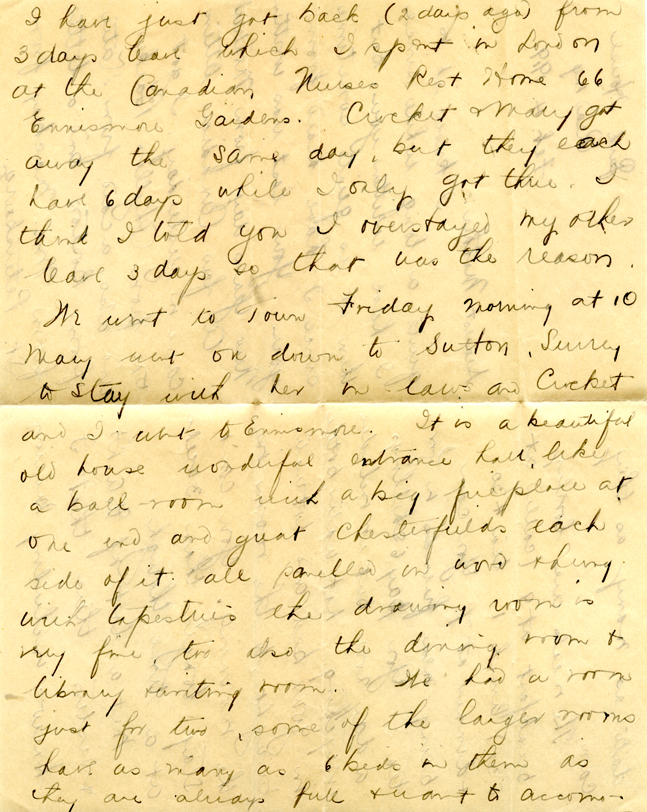 I have just got back (2 days ago) from
3 days leave which I spent in London
at the Canadian Nurses Rest Home 66
Ennismore Gardens. Crocket & Mary got
away the same day, but they each
have 6 days while I only got three. I
think I told you I overstayed my other
leave 3 days so that was the reason.
We went to Town Friday morning at 10
Mary went on down to Sutton, Surrey
to stay with her in laws and Crocket
and I went to Ennismore. It is a beautiful
old house wonderful entrance hall, like
a ball-room with a big fireplace at
one end and great Chesterfields each
side of it. all panelled in wood & hung
with tapestries the drawing room is
very fine, too also the dining room &
library & writing room. We had a room
just for two, some of the larger rooms
have as many as 6 beds in them as
they are always full & want to accom-